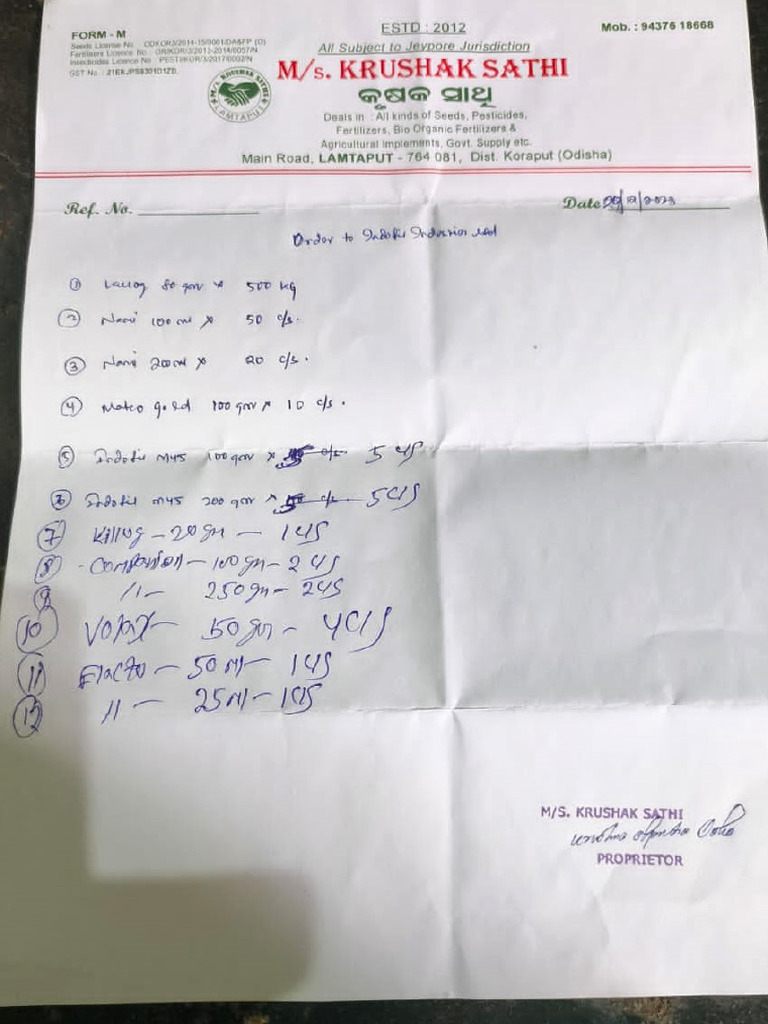 FORM - M
ESTD : 2012
Mob. : 94376 18668
Seeds License No.
Fertilisers Licence No.
Insecticides Licence No.
GST No. :
All Subject to Jeypore Jurisdiction
M/S. KRUSHAK SATHI
LAMTAPUT
M/s. KRUSHAK SATHI
କୃଷକ ସାଥି
Deals in : All kinds of Seeds, Pesticides,
Fertilizers, Bio Organic Fertilizers &
Agricultural Implements, Govt. Supply etc.
Main Road, LAMTAPUT - 764 081, Dist. Koraput (Odisha)
Ref. No.
Date /12/2023
Order to Indofil Industries Ltd
① 80 gm × 500 kg
② 100 ml × 50 c/s.
③ 200 ml × 20 c/s.
④ Matco gold 100 gm × 10 c/s.
⑤ Indofil M45 100 gm × 5 c/s
⑥ Indofil M45 200 gm × 5 c/s
⑦ - 20 gm - 1 c/s
⑧ - Companion - 100 gm - 2 c/s
⑨ 11 - 250 gm - 2 c/s
⑩ - 50 gm - 4 c/s
⑪ - 50 ml - 1 c/s
11 - 25 ml - 1 c/s
M/S. KRUSHAK SATHI
PROPRIETOR